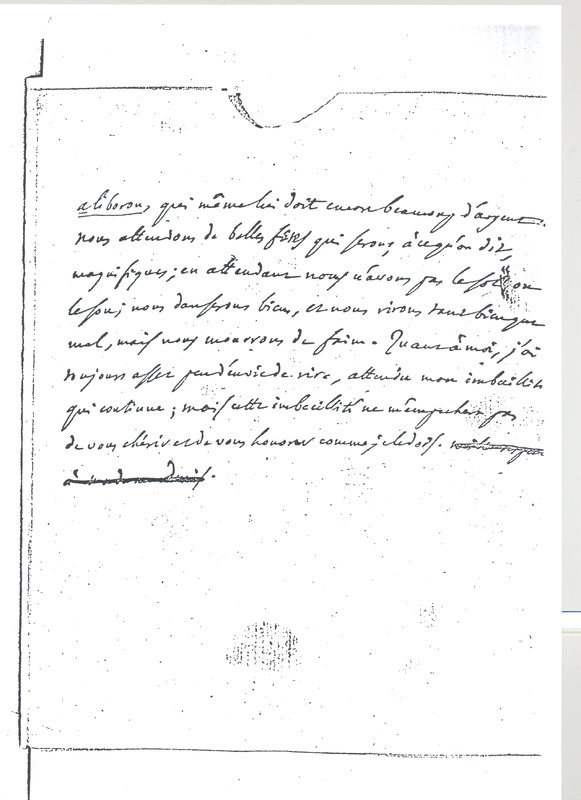 aliboron, qui même lui doit encore beaucoup d'argent.
nous attendons de belles fêtes qui seront, à ce qu'on dit,
magnifiques; en attendant nous n'avons pas le sol ou
le sou; nous danserons bien, et nous rirons tant bien que
mal, mais nous mourrons de faim. Quant à moi, j'ai
toujours assez peu d'envie de rire, attendu mon imbecillité
qui continue; mais cette imbecillité ne m'empeche pas
de vous chérir et de vous honorer comme je le dois.